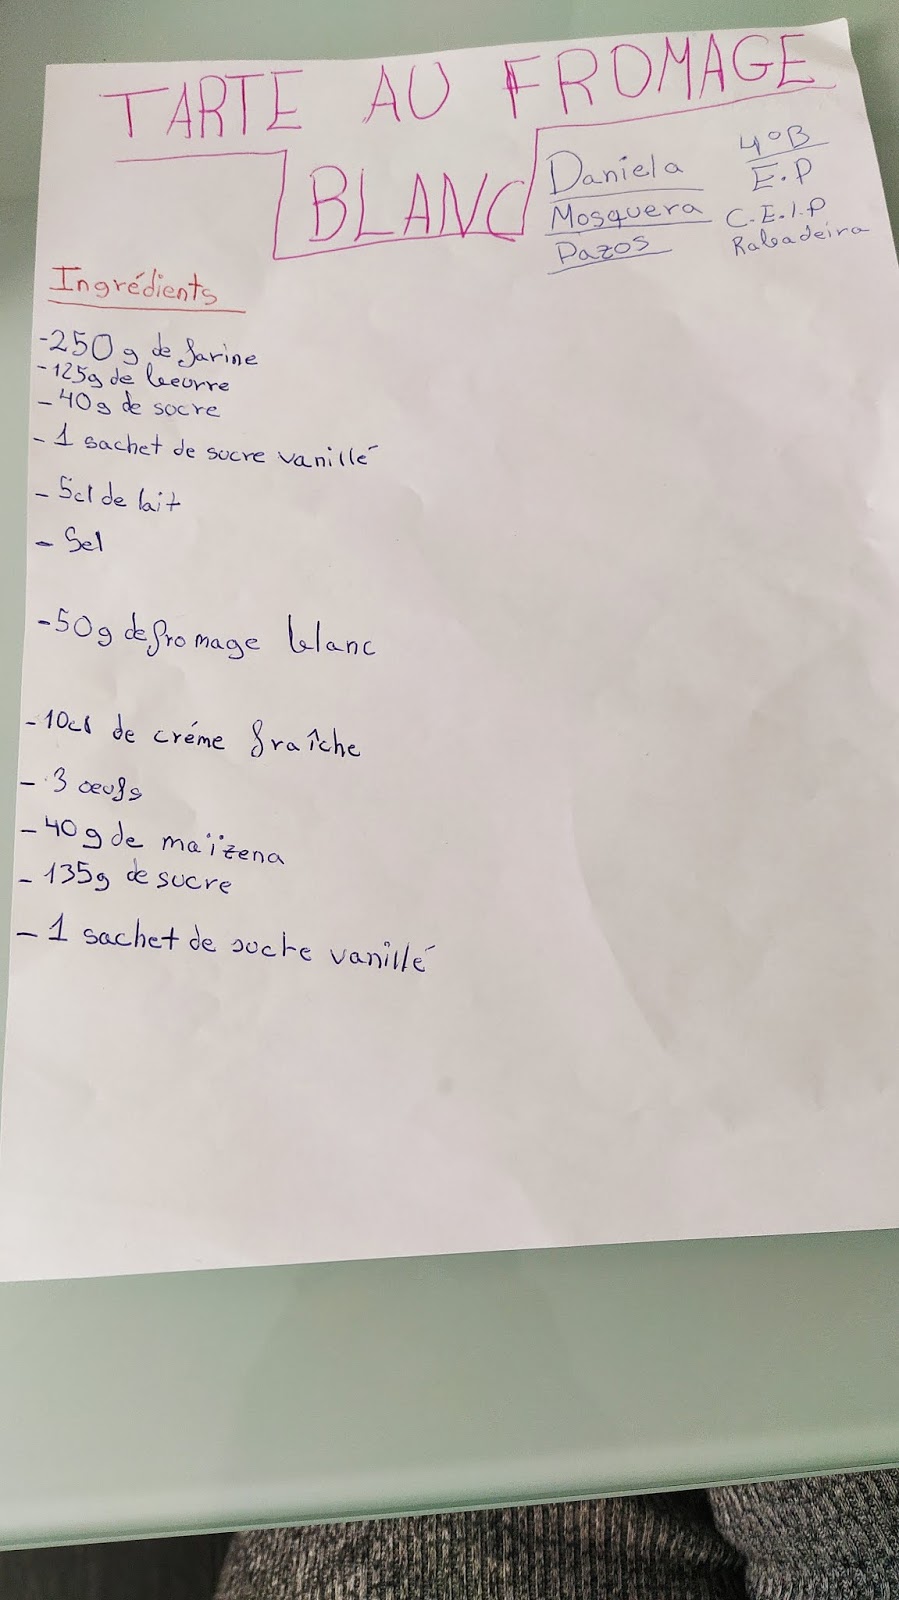 TARTE AU FROMAGE
BLANC
Daniela
Mosquera
Pazos
4ºB
E.P
C.E.I.P
Rabadeira
Ingrédients
-250g de farine
-125g de beurre
-40g de socre
-1 sachet de sucre vanillé
-5cl de lait
-Sel
-50g de fromage blanc
-10cl de créme fraîche
-3 oeufs
-40g de maïzena
-135g de sucre
-1 sachet de sucre vanillé